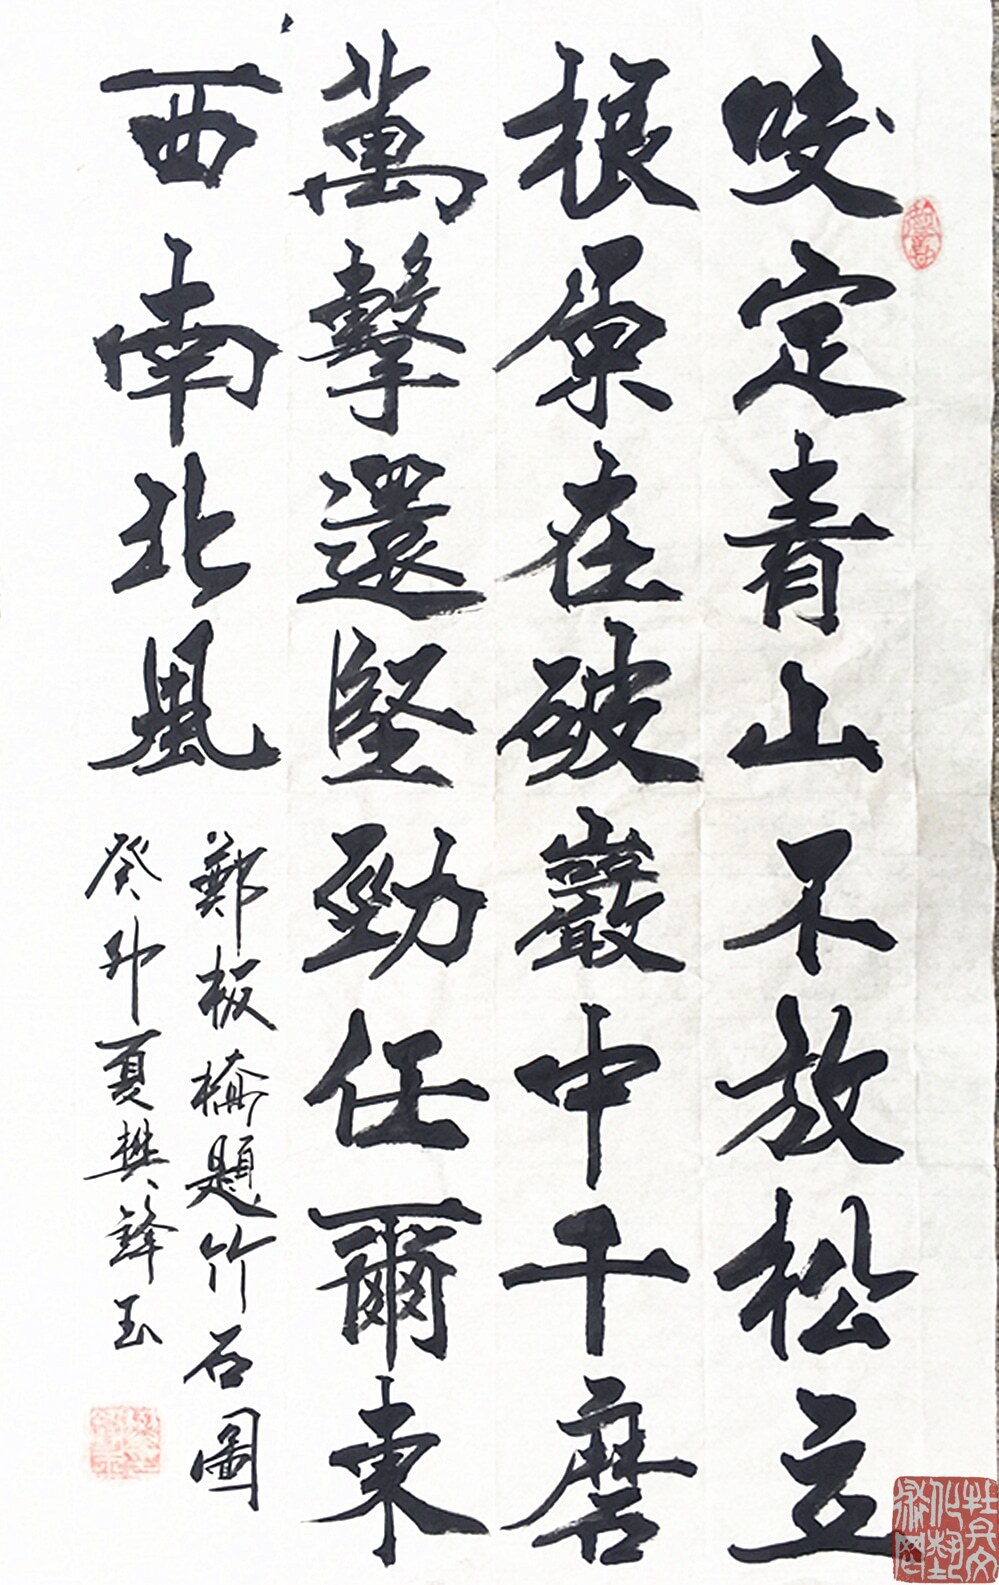 咬定青山不放松立
根原在破巖中千磨
萬擊還堅勁任爾東
西南北風
鄭板橋題竹石圖
癸卯夏樊鋒玉